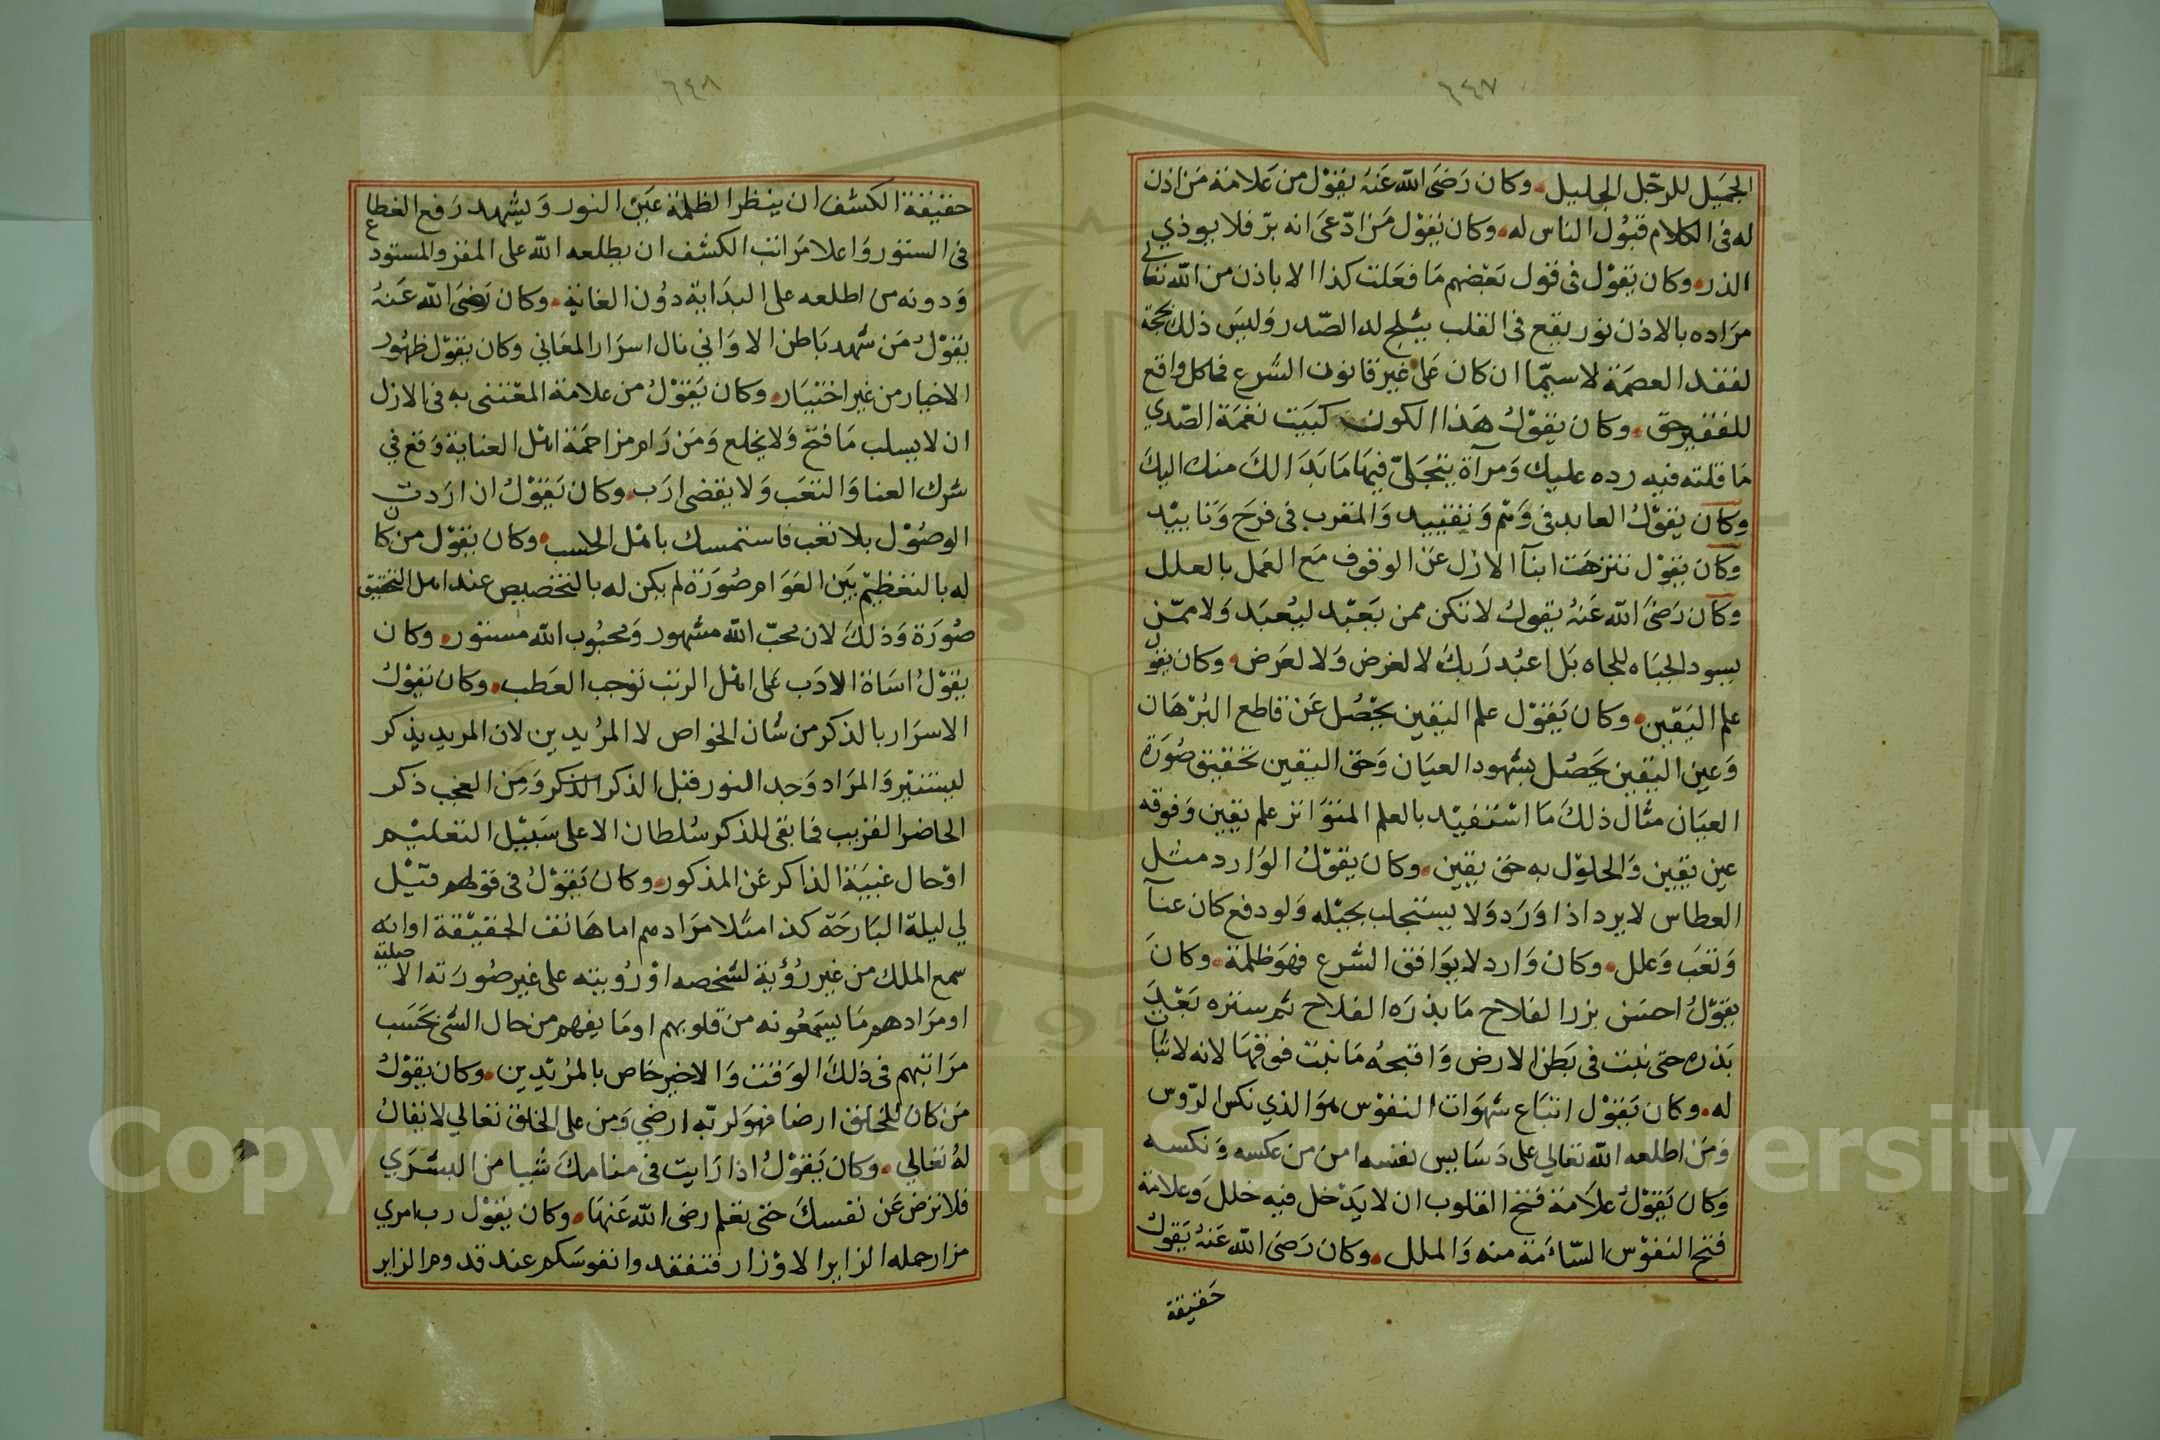 ٦٤٧
الجميل للرجل الجليل وكان رضي الله عنه يقول من علامة من اذن
له في الكلام قبول الناس له وكان يقول من ادعى انه بر فلا يوذي
الذر وكان يقول في قول بعضهم ما فعلت كذا الا باذن من الله تعالي
مراده بالاذن نور يقع في القلب يثلج له الصدر وليس ذلك بحجة
لفقد العصمة لا سيما ان كان على غير قانون الشرع فما كل واقع
للفقير حق وكان يقول هذا الكون كبيت نغمة الصدي
ما قلته فيه رده عليك ومرآة يتجلي فيها ما بدا لك منك اليك
وكان يقول العابد في وهم وتفنيد والمقرب في فرح وتاييد
وكان يقول تنزهت ابنآ الازل عن الوقوف مع العمل بالعلل
وكان رضي الله عنه يقول لا تكن ممن يعبد ليعبد ولا ممن
يسود الجباه للجاه بل اعبد ربك لا لغرض ولا لعرض وكان يقول
علم اليقين وكان يقول علم اليقين يحصل عن قاطع البرهان
وعين اليقين يحصل بشهود العيان وحق اليقين تحقيق صورة
العيان مثال ذلك ما استفيد بالعلم المتواتر علم يقين وفوقه
عين يقين والحلول به حق يقين وكان يقول الوارد مثل
العطاس لا يرد اذا ورد ولا يستجلب بحيله ولو دفع كان عنآ
وتعب وعلل وكان وارد لا يوافق الشرع فهو ظلمة وكان
يقول احسن بزر الفلاح ما بذره الفلاح ثم ستره بعد
بذره حتى نبت في بطن الارض واقبحه ما نبت فوقها لانه لا ثبات
له وكان يقول اتباع شهوات النفوس هو الذي نكس الروس
ومن اطلعه الله تعالي على دسايس نفسه امن من عكسه ونكسه
وكان يقول علامة فتح القلوب ان لا يدخل فيه خلل وعلامة
فتح النفوس السآمة منه والملل وكان رضي الله عنه يقول
حقيقة
٦٤٨
حقيقة الكشف ان ينظر الظلمة عين النور ويشهد رفع الغطاء
في الستور واعلا مراتب الكشف ان يطلعه الله على المقر والمستودع
ودونه من اطلعه على البداية دون الغاية وكان رضي الله عنه
يقول من شهد باطن الاواني نال اسرار المعاني وكان يقول ظهور
الاخيار من غير اختيار وكان يقول من علامة المعتنى به في الازل
ان لا يسلب ما فتح ولا يخلع ومن رام مزاحمة اهل العناية وقع في
شرك العنا والتعب ولا يقضى ارب وكان يقول ان اردت
الوصول بلا تعب فاستمسك باهل الحسب وكان يقول من كان
له بالتعظيم بين العوام صورة لم يكن له بالتخصيص عند اهل التحقيق
صورة وذلك لان محب الله مشهور ومحبوب الله مستور وكان
يقول اساة الادب على اهل الرتب توجب العطب وكان يقول
الاسرار بالذكر من شان الخواص لا المريدين لان المريد يذكر
ليستنير والمراد وجد النور قبل الذكر الذكر ومن العجب ذكر
الحاضر القريب فما بقى للذكر سلطان الا على سبيل التعليم
او حال غيبة الذاكر عن المذكور وكان يقول في قولهم قيل
لي ليلة البارحة كذا مثلا مرادهم اما هاتف الحقيقة او انه
سمع الملك من غير رؤية لشخصه او رؤيته على غير صورته الاصلية
او مرادهم ما يسمعونه من قلوبهم او ما يفهم من حال الشئ بحسب
مراتبهم في ذلك الوقت والاخير خاص بالمريدين وكان يقول
من كان للخلق ارضا فهو لربه ارضي ومن على الخلق تعالي لا يقال
له تعالي وكان يقول اذا رايت في منامك شيا من البشري
فلا ترض عن نفسك حتى تعلم رضى الله عنها وكان يقول رب امري
مزار حمله الزاير الاوزار فتفقدوا نفوسكم عند قدوم الزاير
Copyright © King Saud University